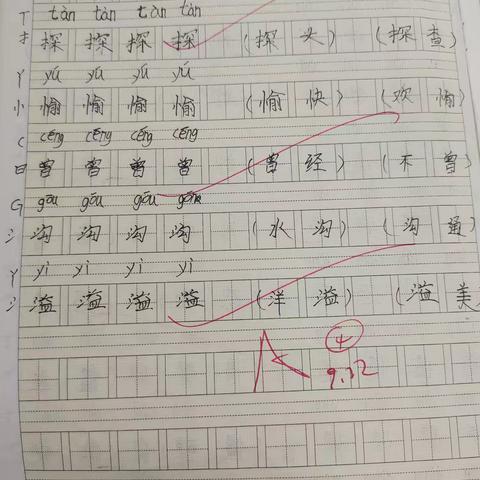 T tàn tàn tàn tàn
扌 探 探 探 探 (探头) (探查)
Y yú yú yú yú
忄 愉 愉 愉 愉 (愉快) (欢愉)
C céng céng céng céng
曰 曾 曾 曾 曾 (曾经) (不曾)
G gōu gōu gōu gōu
氵 沟 沟 沟 沟 (水沟) (沟通)
Y yì yì yì yì
氵 溢 溢 溢 溢 (洋溢) (溢美
A 4
9.22